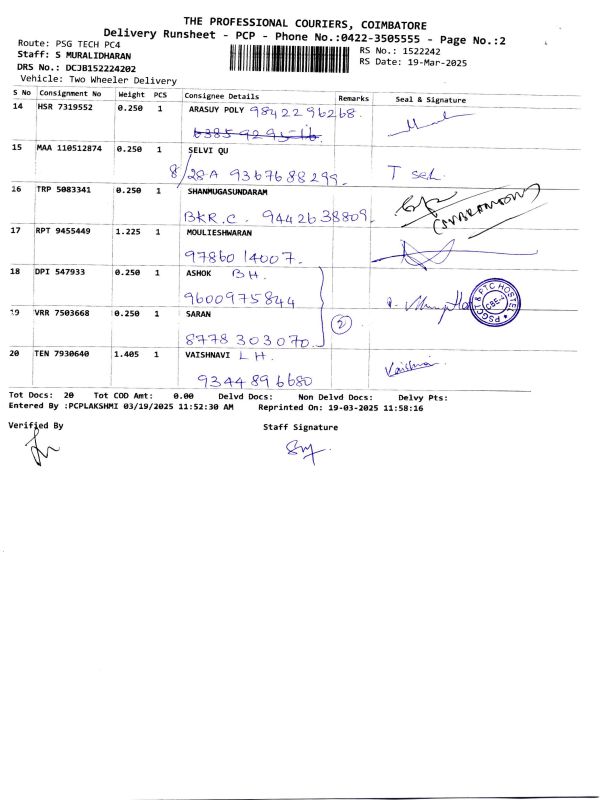 THE PROFESSIONAL COURIERS, COIMBATORE
Delivery Runsheet - PCP - Phone No.:0422-3505555 - Page No.:2
Route: PSG TECH PC4
Staff: S MURALIDHARAN
RS No.: 1522242
DRS No.: DCJB152224202
RS Date: 19-Mar-2025
Vehicle: Two Wheeler Delivery
S No Consignment No Weight PCS Consignee Details Remarks Seal & Signature
14 HSR 7319552 0.250 1 ARASUY POLY 9842296268.
6385929516.
15 MAA 110512874 0.250 1 SELVI QU
8/28-A 9367688299. T sel.
16 TRP 5083341 0.250 1 SHANMUGASUNDARAM
BKR.C. 9442638809.
17 RPT 9455449 1.225 1 MOULIESHWARAN
9786014007.
18 DPI 547933 0.250 1 ASHOK BH.
9600975844
PSGCT & PTC HOSTEL
CBE-4
19 VRR 7503668 0.250 1 SARAN
8778303070. 2
20 TEN 7930640 1.405 1 VAISHNAVI L H. Vaishnavi
9344896680
Tot Docs: 20 Tot COD Amt: 0.00 Delvd Docs: Non Delvd Docs: Delvy Pts:
Entered By :PCPLAKSHMI 03/19/2025 11:52:30 AM Reprinted On: 19-03-2025 11:58:16
Verified By Staff Signature